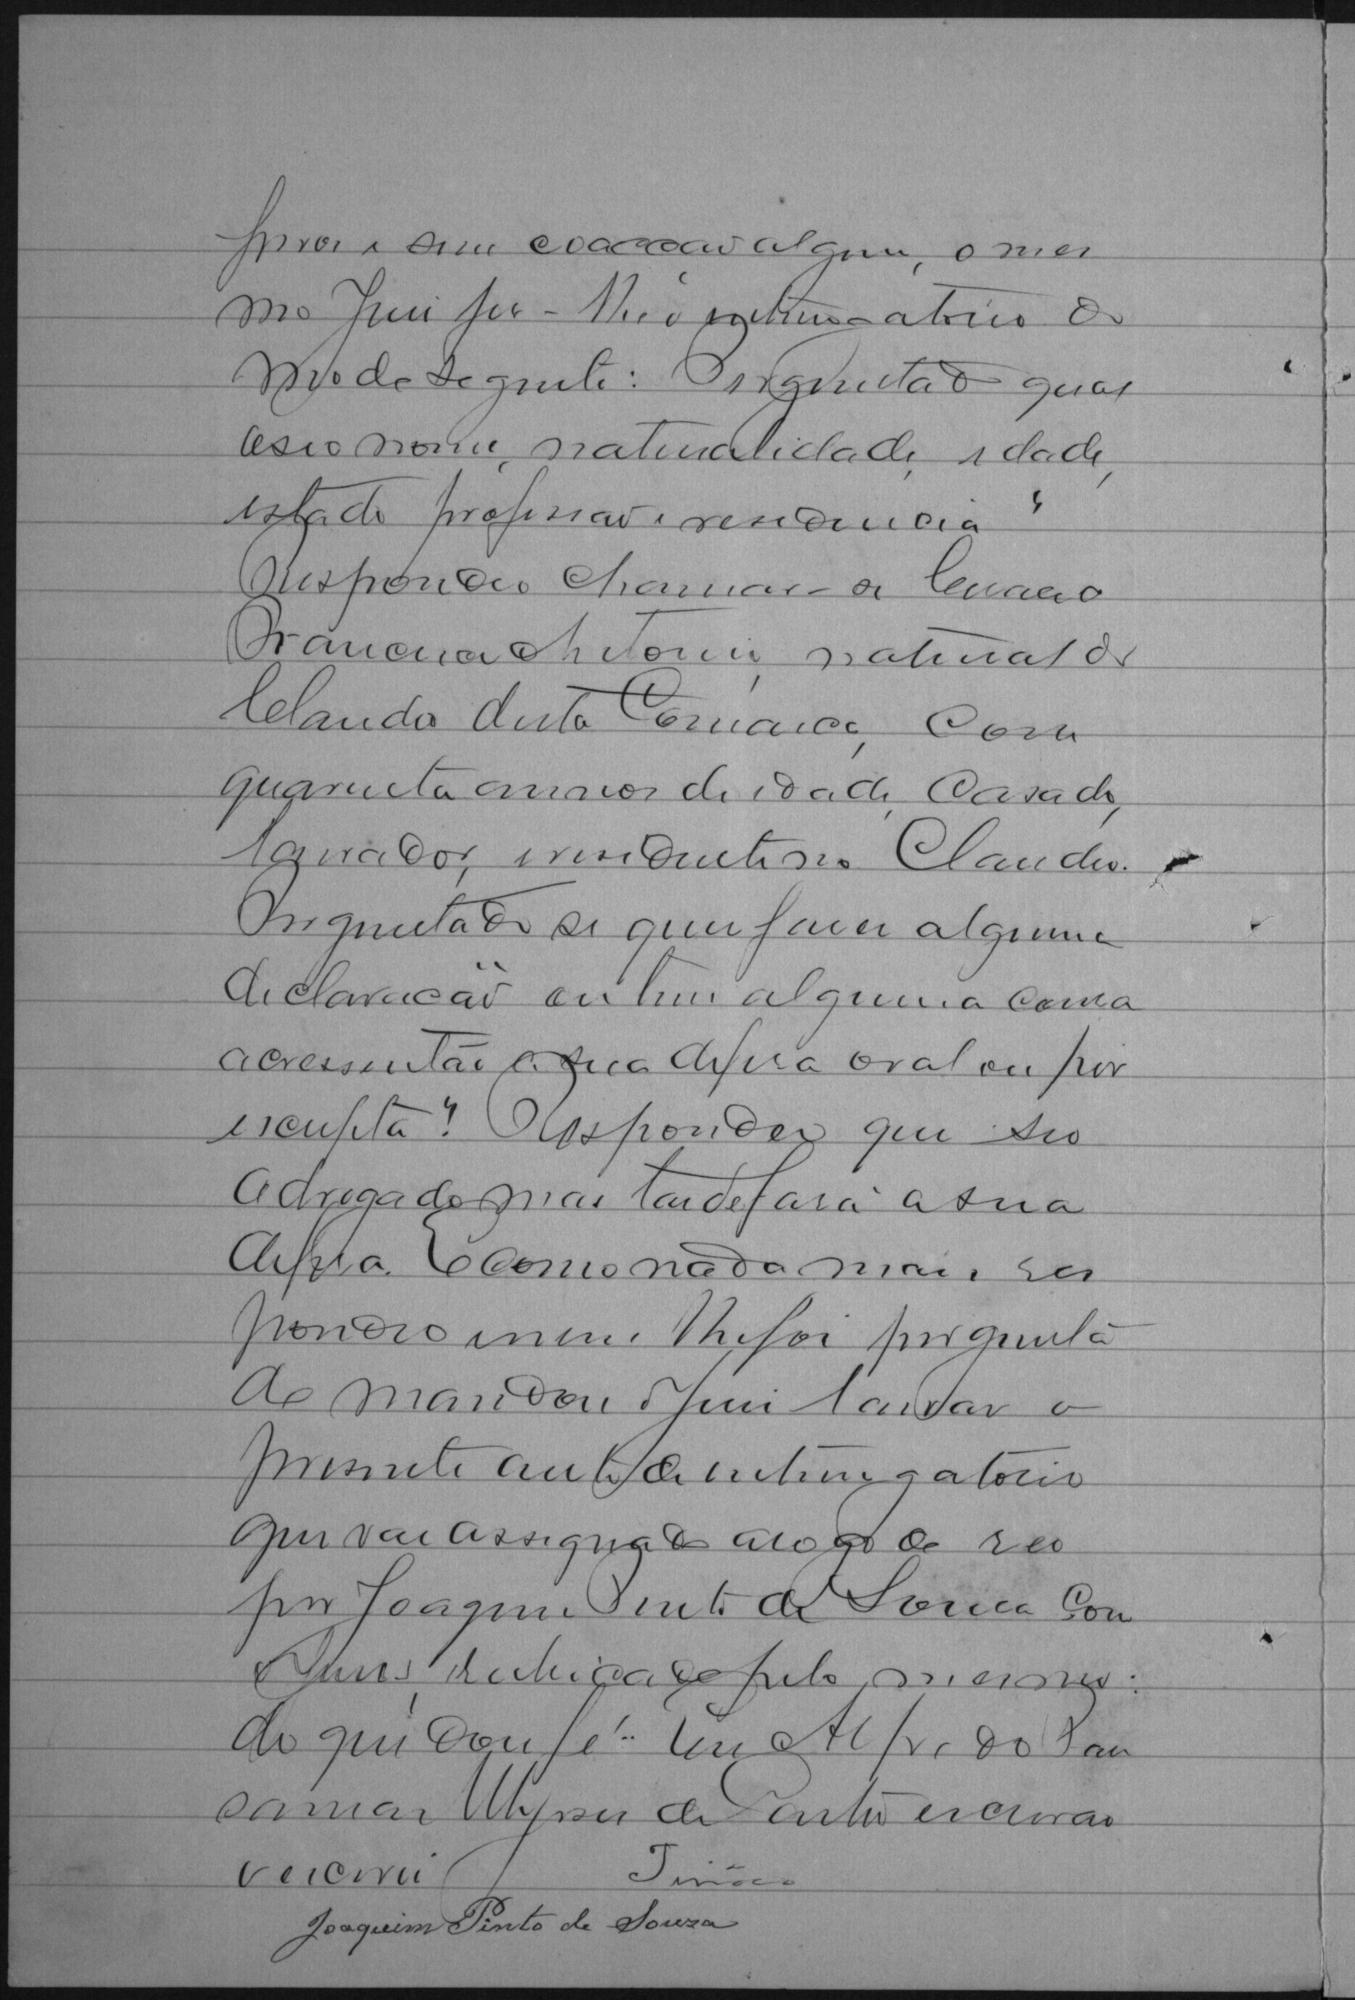 ferros e sem coacção alguma, o mes
mo Juiz fez-lhe o interrogatorio do
modo seguinte: Perguntado qual
o seo nome, naturalidade, idade,
estado profissão e residencia?
Respondeo chamar-se
Francisco Antonio, natural de
Claudio desta Comarca, com
quarenta annos de idade, casado,
lavrador, e residente no Claudio.
Perguntado se quer fazer alguma
declaração ou tem alguma cousa
acressentar a sua defesa oral ou por
escripta? Respondeo que seo
advogado mais tarde fará a sua
defesa. E como nada mais res
pondeo e nem lhe foi pergunta
do mandou o Juiz lavrar o
presente auto de interrogatorio
que vae assignado a rogo do reo
por Joaquim Pinto de Souza com
o Juiz, rubricado pelo mesmo:
do que dou fé. Eu Alfredo
Ulysses de Castro escrivão
o escrevi
Joaquim Pinto de Souza